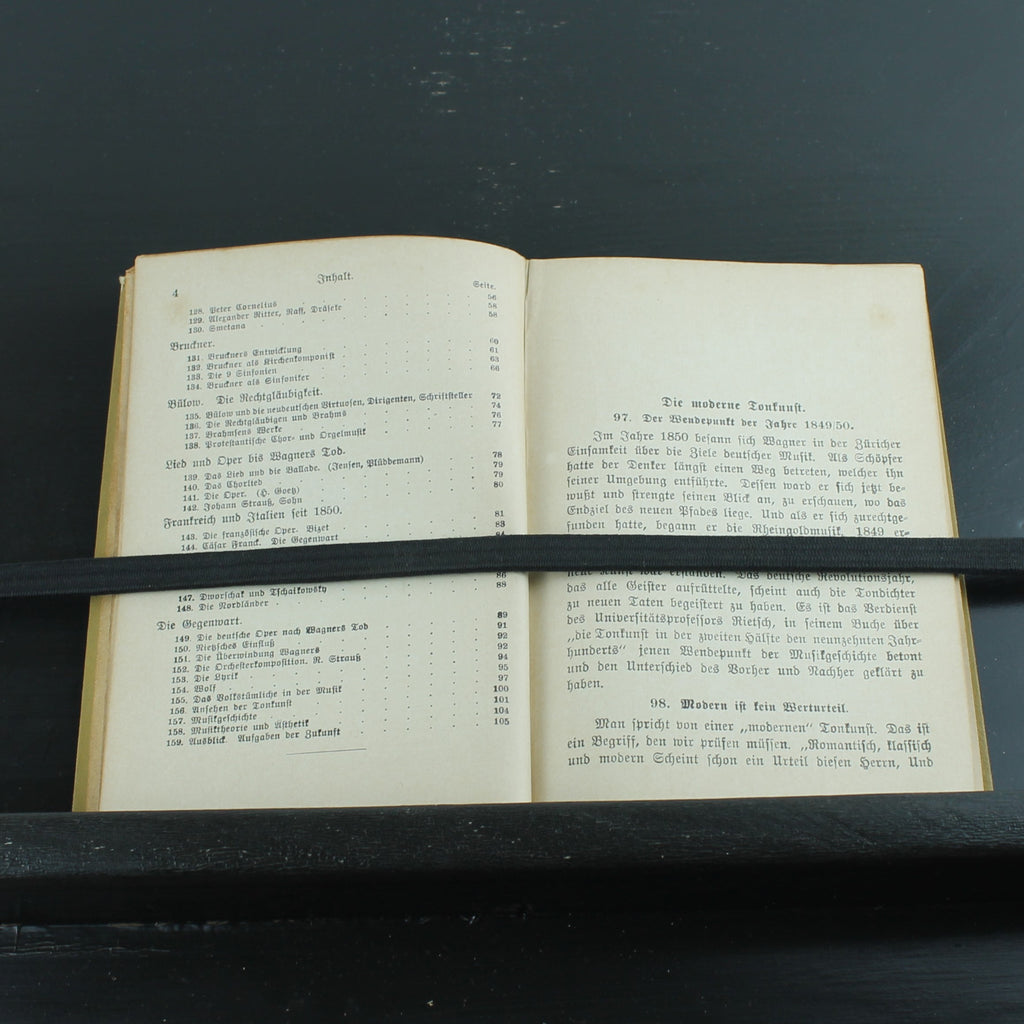 4
Inhalt.
Seite.
128. Peter Cornelius 56
129. Alexander Ritter, Raff, Dräseke 58
130. Smetana 58
Bruckner.
131. Bruckners Entwicklung 60
132. Bruckner als Kirchenkomponist 61
133. Die 9 Sinfonien 63
134. Bruckner als Sinfoniker 66
Bülow. Die Rechtgläubigkeit.
135. Bülow und die neudeutschen Virtuosen, Dirigenten, Schriftsteller 72
136. Die Rechtgläubigen und Brahms 74
137. Brahmsens Werke 76
138. Protestantische Chor- und Orgelmusik 77
Lied und Oper bis Wagners Tod.
139. Das Lied und die Ballade. (Jensen, Plüddemann) 78
140. Das Chorlied 79
141. Die Oper. (H. Goetz) 79
142. Johann Strauß, Sohn 80
Frankreich und Italien seit 1850.
143. Die französische Oper. Bizet 81
144. Cäsar Franck. Die Gegenwart 83
86
147. Dworschak und Tschaikowsky 88
148. Die Nordländer
Die Gegenwart.
149. Die deutsche Oper nach Wagners Tod 89
150. Nietzsches Einfluß 91
151. Die Überwindung Wagners 92
152. Die Orchesterkomposition. R. Strauß 92
153. Die Lyrik 94
154. Wolf 95
155. Das Volkstümliche in der Musik 97
156. Ansehen der Tonkunst 100
157. Musikgeschichte 101
158. Musiktheorie und Ästhetik 104
159. Ausblick. Aufgaben der Zukunft 105
Die moderne Tonkunst.
97. Der Wendepunkt der Jahre 1849/50.
Im Jahre 1850 besann sich Wagner in der Züricher
Einsamkeit über die Ziele deutscher Musik. Als Schöpfer
hatte der Denker längst einen Weg betreten, welcher ihn
seiner Umgebung entführte. Dessen ward er sich jetzt be-
wußt und strengte seinen Blick an, zu erschauen, wo das
Endziel des neuen Pfades liege. Und als er sich zurechtge-
funden hatte, begann er die Rheingoldmusik. 1849 er-
neue Kunst war erstanden. Das deutsche Revolutionsjahr,
das alle Geister aufrüttelte, scheint auch die Tondichter
zu neuen Taten begeistert zu haben. Es ist das Verdienst
des Universitätsprofessors Rietsch, in seinem Buche über
„die Tonkunst in der zweiten Hälfte des neunzehnten Jahr-
hunderts“ jenen Wendepunkt der Musikgeschichte betont
und den Unterschied des Vorher und Nachher geklärt zu
haben.
98. Modern ist kein Werturteil.
Man spricht von einer „modernen“ Tonkunst. Das ist
ein Begriff, den wir prüfen müssen. „Romantisch, klassisch
und modern Scheint schon ein Urteil diesen Herrn, Und